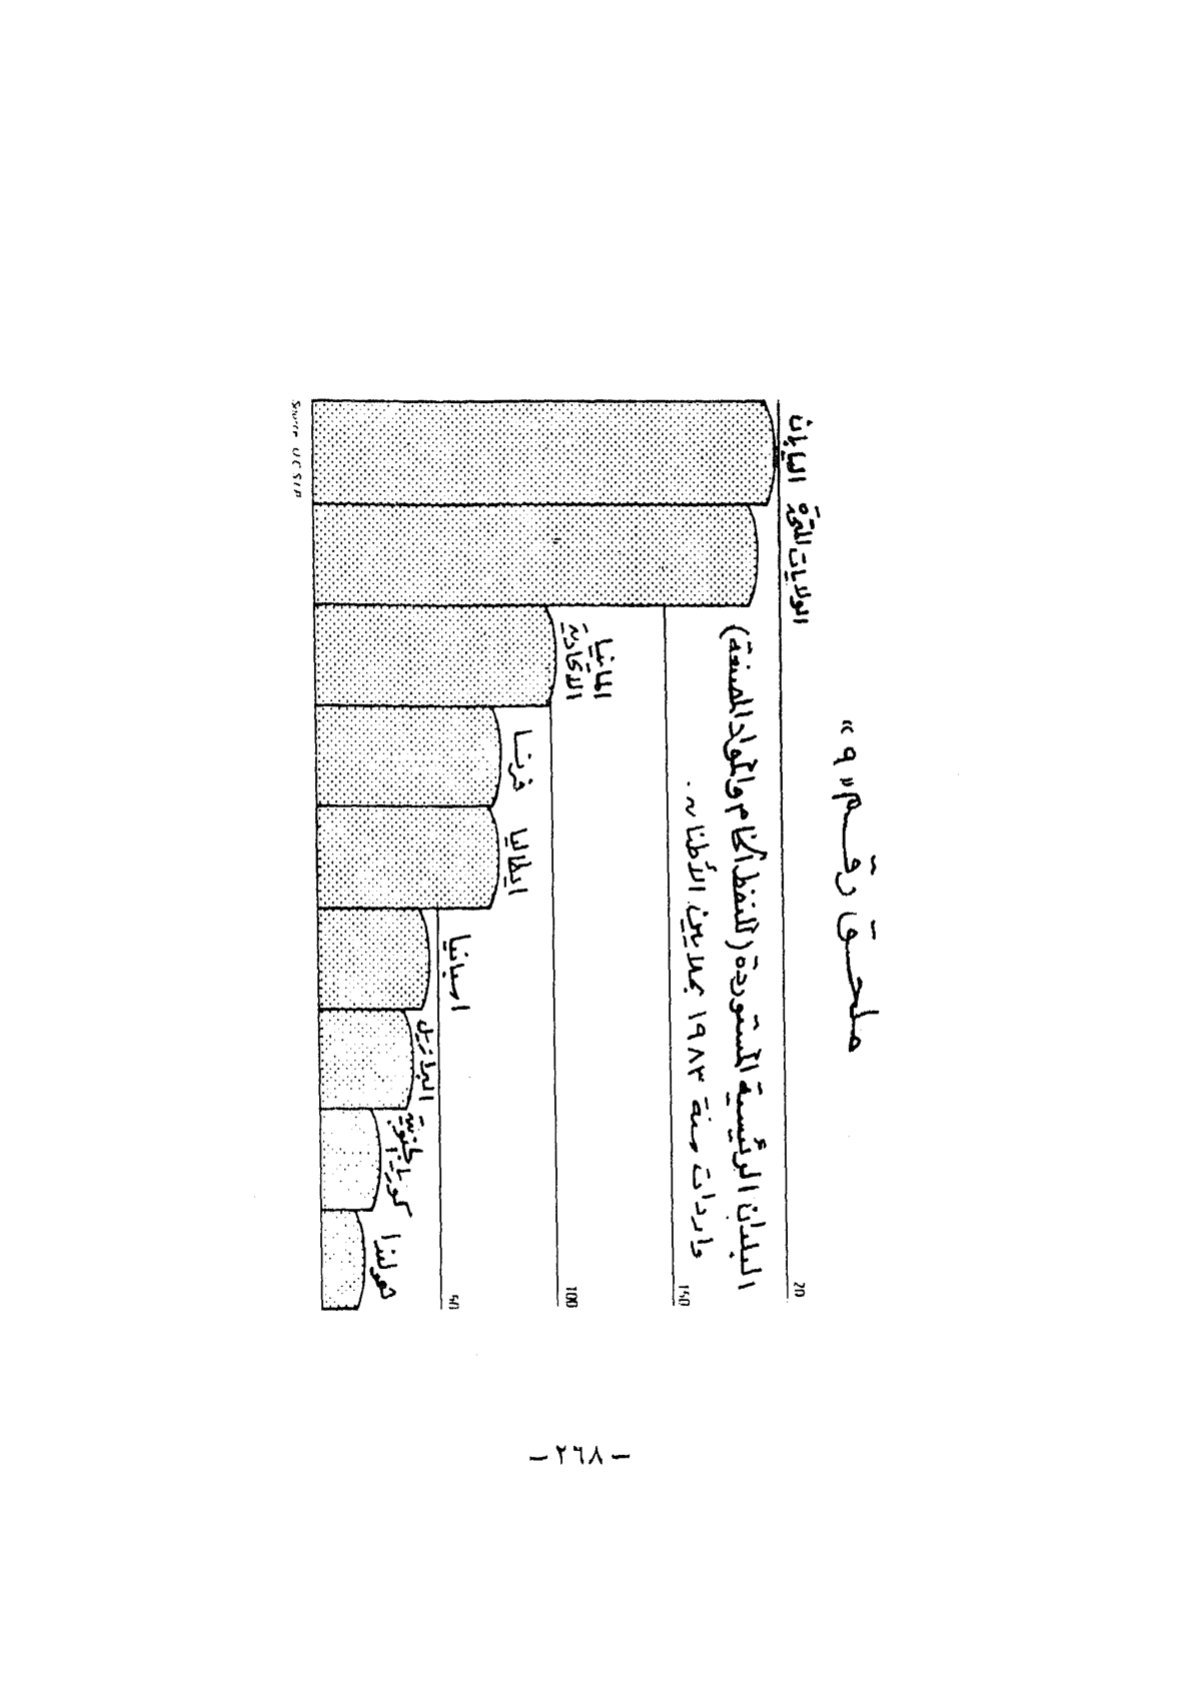 ملحق رقم «٩»
البلدان الرئيسية المستوردة (للنفط الخام والمواد المصنعة)
واردات سنة ١٩٨٣ بملايين الأطنان.
20
150
100
50
اليابان
الولايات المتحدة
المانيا
الاتحادية
فرنسا
ايطاليا
اسبانيا
البرازيل
كوريا الجنوبية
هولندا
Source
– ٢٦٨ –